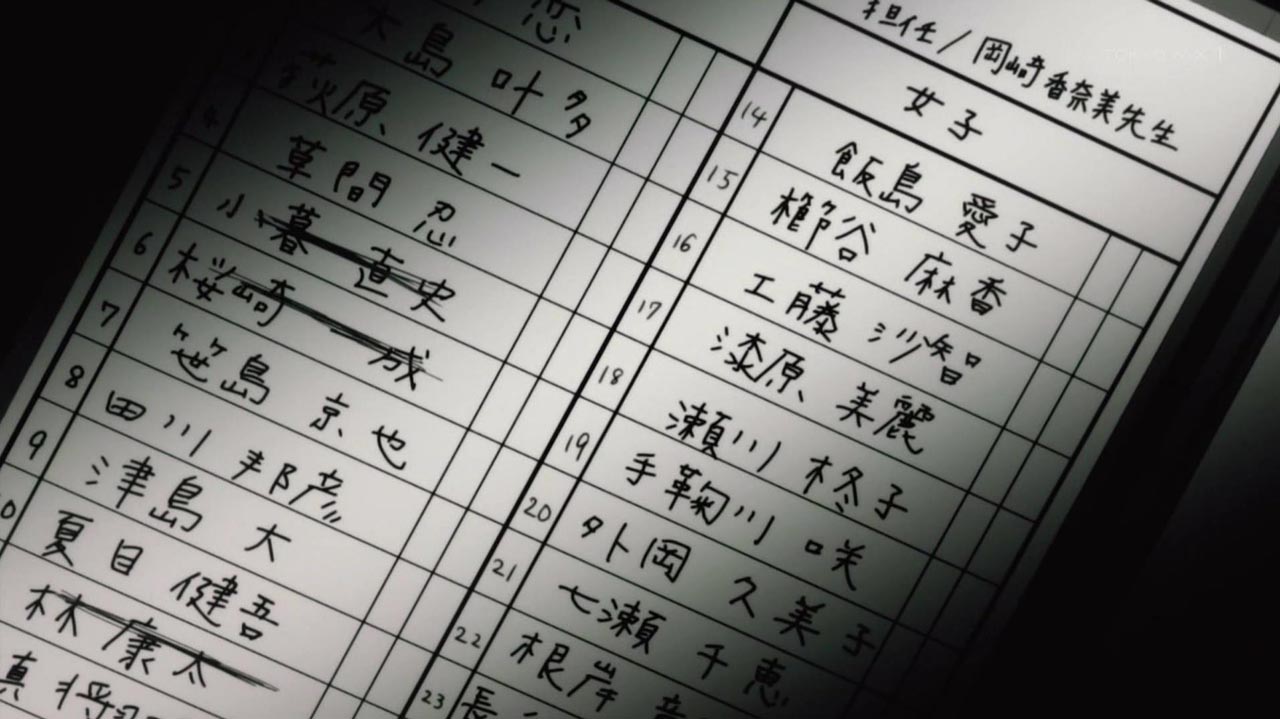 担任/岡崎香奈美先生
恋
大島 叶多
荻原 健一
4 草間 忍
5 小暮 直史
6 桜崎 一成
7 笹島 京也
8 田川 邦彦
9 津島 大
10 夏目 健吾
林 康太
真 将
女子
14 飯島 愛子
15 櫛谷 麻香
16 工藤 沙智
17 漆原 美麗
18 瀬川 柊子
19 手鞠川 咲
20 外岡 久美子
21 七瀬 千恵
22 根岸
23 長
TOKYO MX1